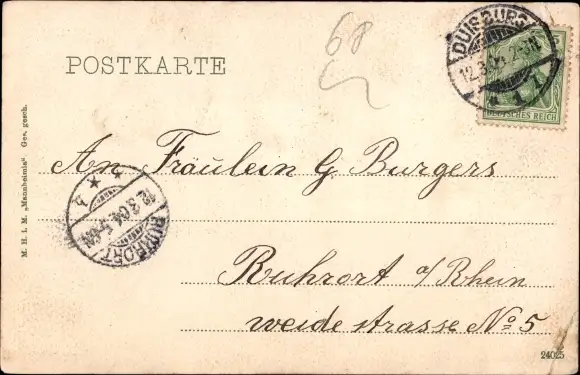 68
POSTKARTE
DUISBURG
12.3.04. 2-3N.
DEUTSCHES REICH
M. H. i. M. „Mannheimia“ Ges. gesch.
An Fräulein G Burgers
RUHRORT
12.3.04. 5-6N
Ruhrort a/Rhein
weide strasse No 5
24025